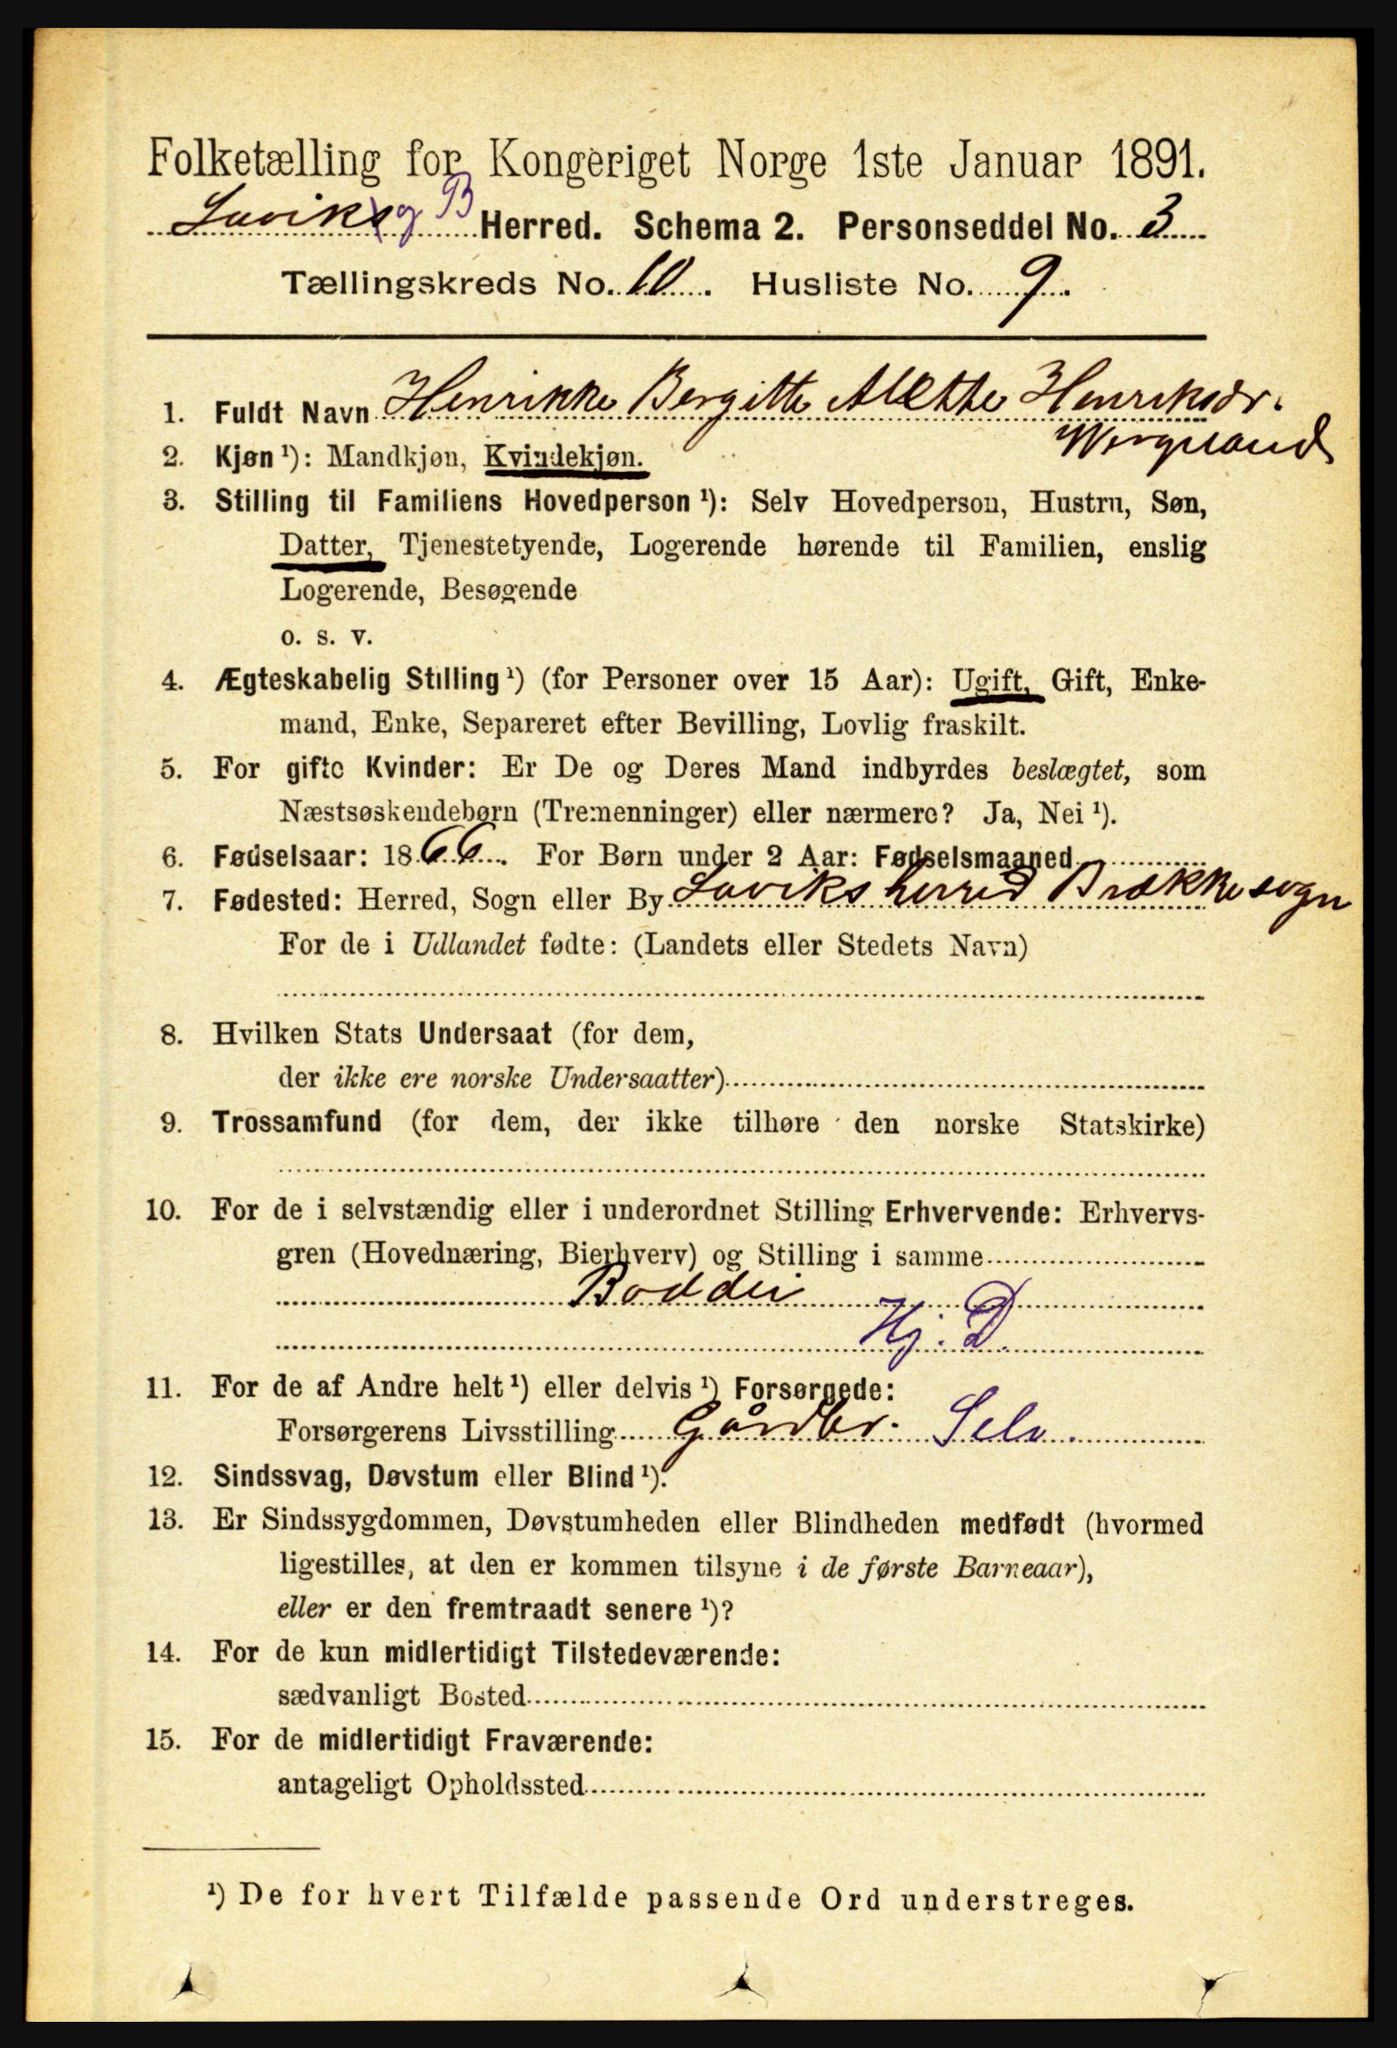 Folketælling for Kongeriget Norge 1ste Januar 1891.
Laviks og B Herred. Schema 2. Personseddel No. 3
Tællingskreds No. 10. Husliste No. 9.
1. Fuldt Navn Henrikke Bergitte Alette Henriksdr.
2. Kjøn ¹): Mandkjøn, Kvindekjøn.
3. Stilling til Familiens Hovedperson ¹): Selv Hovedperson, Hustru, Søn,
Datter, Tjenestetyende, Logerende hørende til Familien, enslig
Logerende, Besøgende
o. s. v.
4. Ægteskabelig Stilling ¹) (for Personer over 15 Aar): Ugift, Gift, Enke-
mand, Enke, Separeret efter Bevilling, Lovlig fraskilt.
5. For gifte Kvinder: Er De og Deres Mand indbyrdes beslægtet, som
Næstsøskendebørn (Tremenninger) eller nærmere? Ja, Nei ¹).
6. Fødselsaar: 1866. For Børn under 2 Aar: Fødselsmaaned
7. Fødested: Herred, Sogn eller By Laviks herred Brække sogn
For de i Udlandet fødte: (Landets eller Stedets Navn)
8. Hvilken Stats Undersaat (for dem,
der ikke ere norske Undersaatter)
9. Trossamfund (for dem, der ikke tilhøre den norske Statskirke)
10. For de i selvstændig eller i underordnet Stilling Erhvervende: Erhvervs-
gren (Hovednæring, Bierhverv) og Stilling i samme
Boddei
Hj. D.
11. For de af Andre helt ¹) eller delvis ¹) Forsørgede:
Forsørgerens Livsstilling Gårdbr. Selv.
12. Sindssvag, Døvstum eller Blind ¹).
13. Er Sindssygdommen, Døvstumheden eller Blindheden medfødt (hvormed
ligestilles, at den er kommen tilsyne i de første Barneaar),
eller er den fremtraadt senere ¹)?
14. For de kun midlertidigt Tilstedeværende:
sædvanligt Bosted
15. For de midlertidigt Fraværende:
antageligt Opholdssted
¹) De for hvert Tilfælde passende Ord understreges.